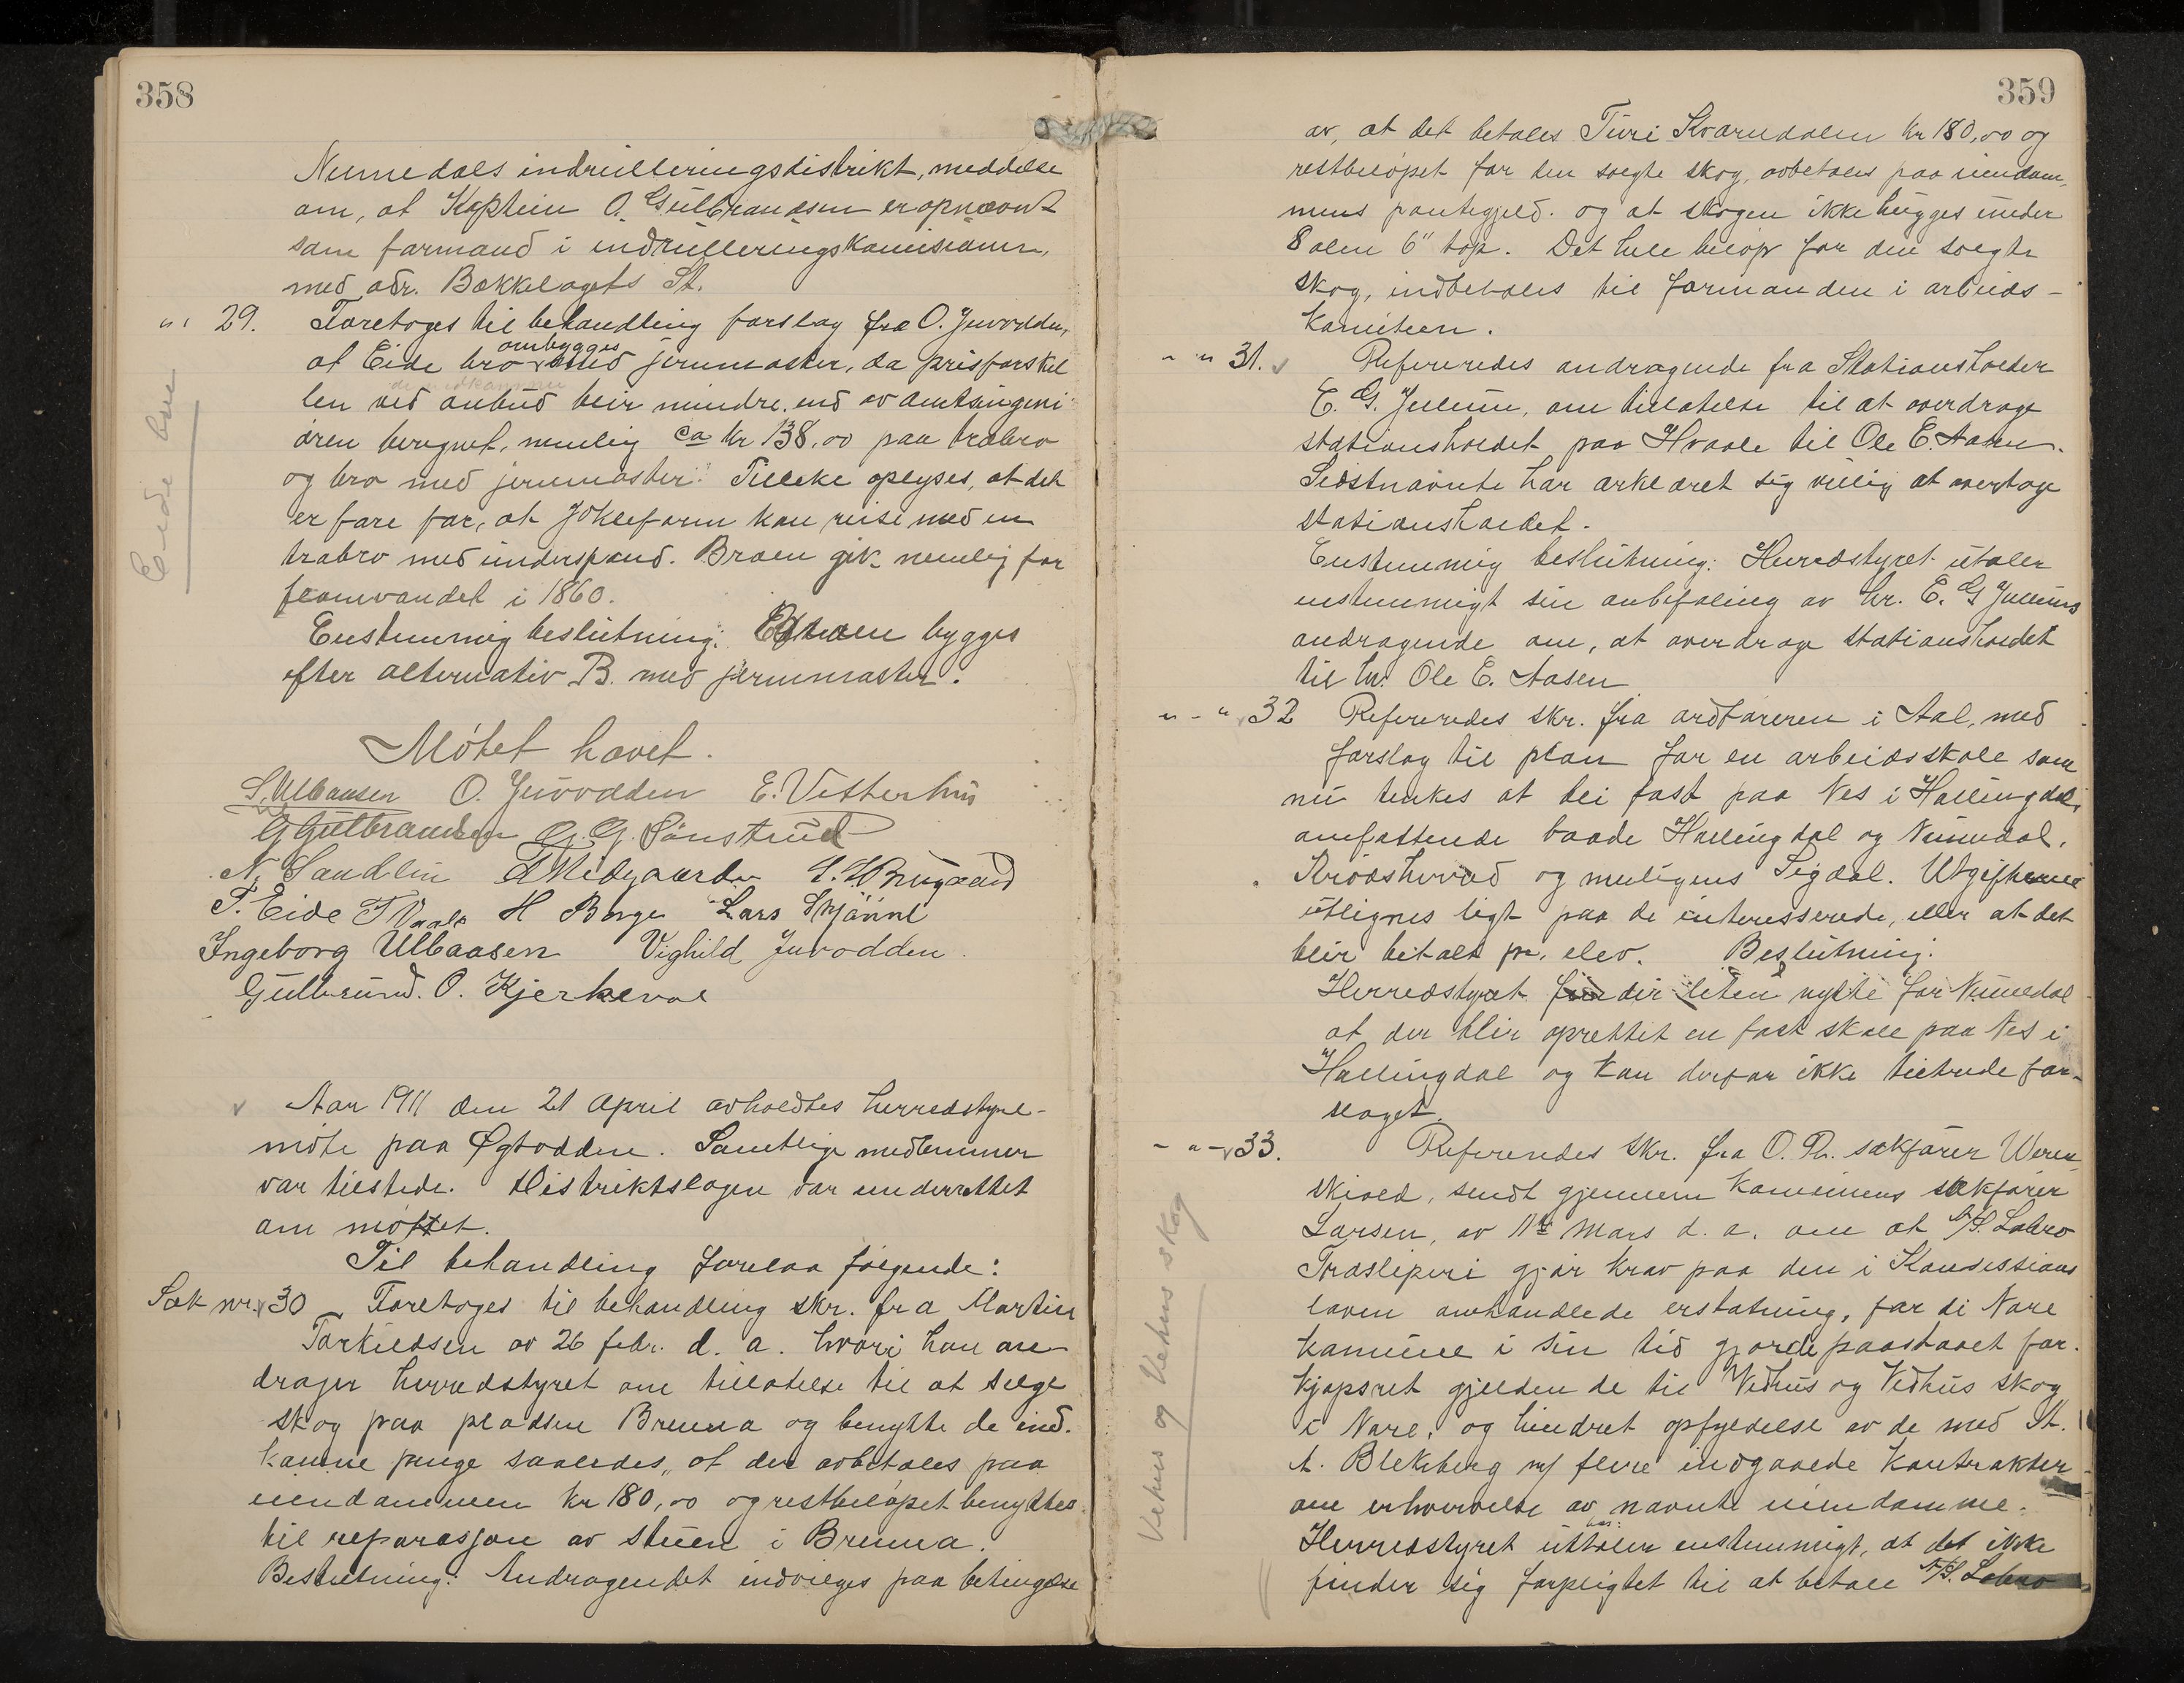 358
Numedals indrulleringsdistrikt, meddelse
om, at Kaptein O. Gulbrandsen er opnævnt
som formand i indrulleringskomisionen,
med adr. Bækkelagets St.
29. Foretoges til behandling forslag fra O. Juvodden,
at Eide bro ombygges med jernmaster, da prisforskel
len ved anbud blir mindre end av amtsingeni
øren beregnet, nemlig ca kr 138,00 paa træbro
og bro med jernmaster. Tillike oplyses, at det
er fare for, at Jøkleform kan reise med en
træbro med underspænd. Broen gik nemlig for
flomvandet i 1860.
Enstemmig beslutning: Broen bygges
efter alternativ B. med jernmaster.
Eide bro
Møtet hævet.
S. Ulbaasen O. Juvodden E. Vesterhus
G Gulbrandsen G. G. Sønstrud
N. Sandlin T Medgaarden L. L. Brugaard
P. Eide T Vaale H Borge Lars Skjønne
Ingeborg Ulbaasen Vighild Juvodden
Gulbrand. O. Kjerkevol
Aar 1911 den 21 April avholdtes herredstyre-
møte paa Øgtodden. Samtlige medlemmer
var tilstede. Distriktslægen var underrettet
om møttet.
Til behandling forelaa følgende:
Sak nr. 30 Foretoges til behandling skr. fra Martin
Torkildsen av 26 febr. d. a. hvori han an-
drager herredstyret om tillatelse til at selge
skog paa pladsen Brenna og benytte de ind-
komne penge saaledes, at der avbetales paa
eiendommen kr 180,00 og restbeløpet benyttes
til reparasjon av stuen i Brenna.
Beslutning: Andragendet indvilges paa betingelse
359
av, at det betales Turi Kvarndalen kr 180,00 og
restbeløpet for den solgte skog, avbetales paa eiendom,
mens pantegjæld. og at skogen ikke hugges under
8 alen 6" top. Det hele beløp for den solgte
skog, indbetales til formanden i arbeids-
komiteen.
- " 31. Refereredes andragende fra Stationsholder
E. G. Jullum, om tillatelse til at overdrage
stationsholdet paa Hvaale til Ole E. Aasen.
Sidstnævnte har erklæret sig villig at overtage
stationsholdet.
Enstemmig beslutning: Herredstyret utaler
enstemmigt sin anbefaling av hr. E. G Jullums
andragende om, at overdrage stationsholdet
til hr. Ole E. Aasen
" - " 32 Refereredes skr. fra ordføreren i Aal, med
forslag til plan for en arbeidsskole som
nu tenkes at bli fast paa Nes i Hallingdal,
omfattende baade Hallingdal og Numedal,
Krødsherred og muligens Sigdal. Utgifterne
utlignes ligt paa de interesserede, eller at det
blir betalt pr. elev. Beslutning:
Herredstyret finder liten nytte for Numedal
at der blir oprettet en fast skole paa Nes i
Hallingdal og kan derfor ikke tiltræde for-
slaget.
- " - 33. Refereredes skr. fra O. R. sakfører Weren
skiold, sendt gjennem kommunens sakfører
Larsen, av 11te Mars d. a. om at A/S. Labro
Træsliperi gjør krav paa den i Konsessions
loven omhandlede erstatning, for di Nore
komune i sin tid gjorde paastaaet for-
kjøpsret gjeldende til Vedhus og Vedhus skog
i Nore, og hindret opfyldelse av de med St.
A. Blekeberg m/ flere indgaaede kontrakter
om erhvervelse av nævnte eiendomme.
Herredstyret uttaler enstemmigt, at det ikke
finder sig forpligtet til at betale A/S. Labro
Vethus og Vethus skog